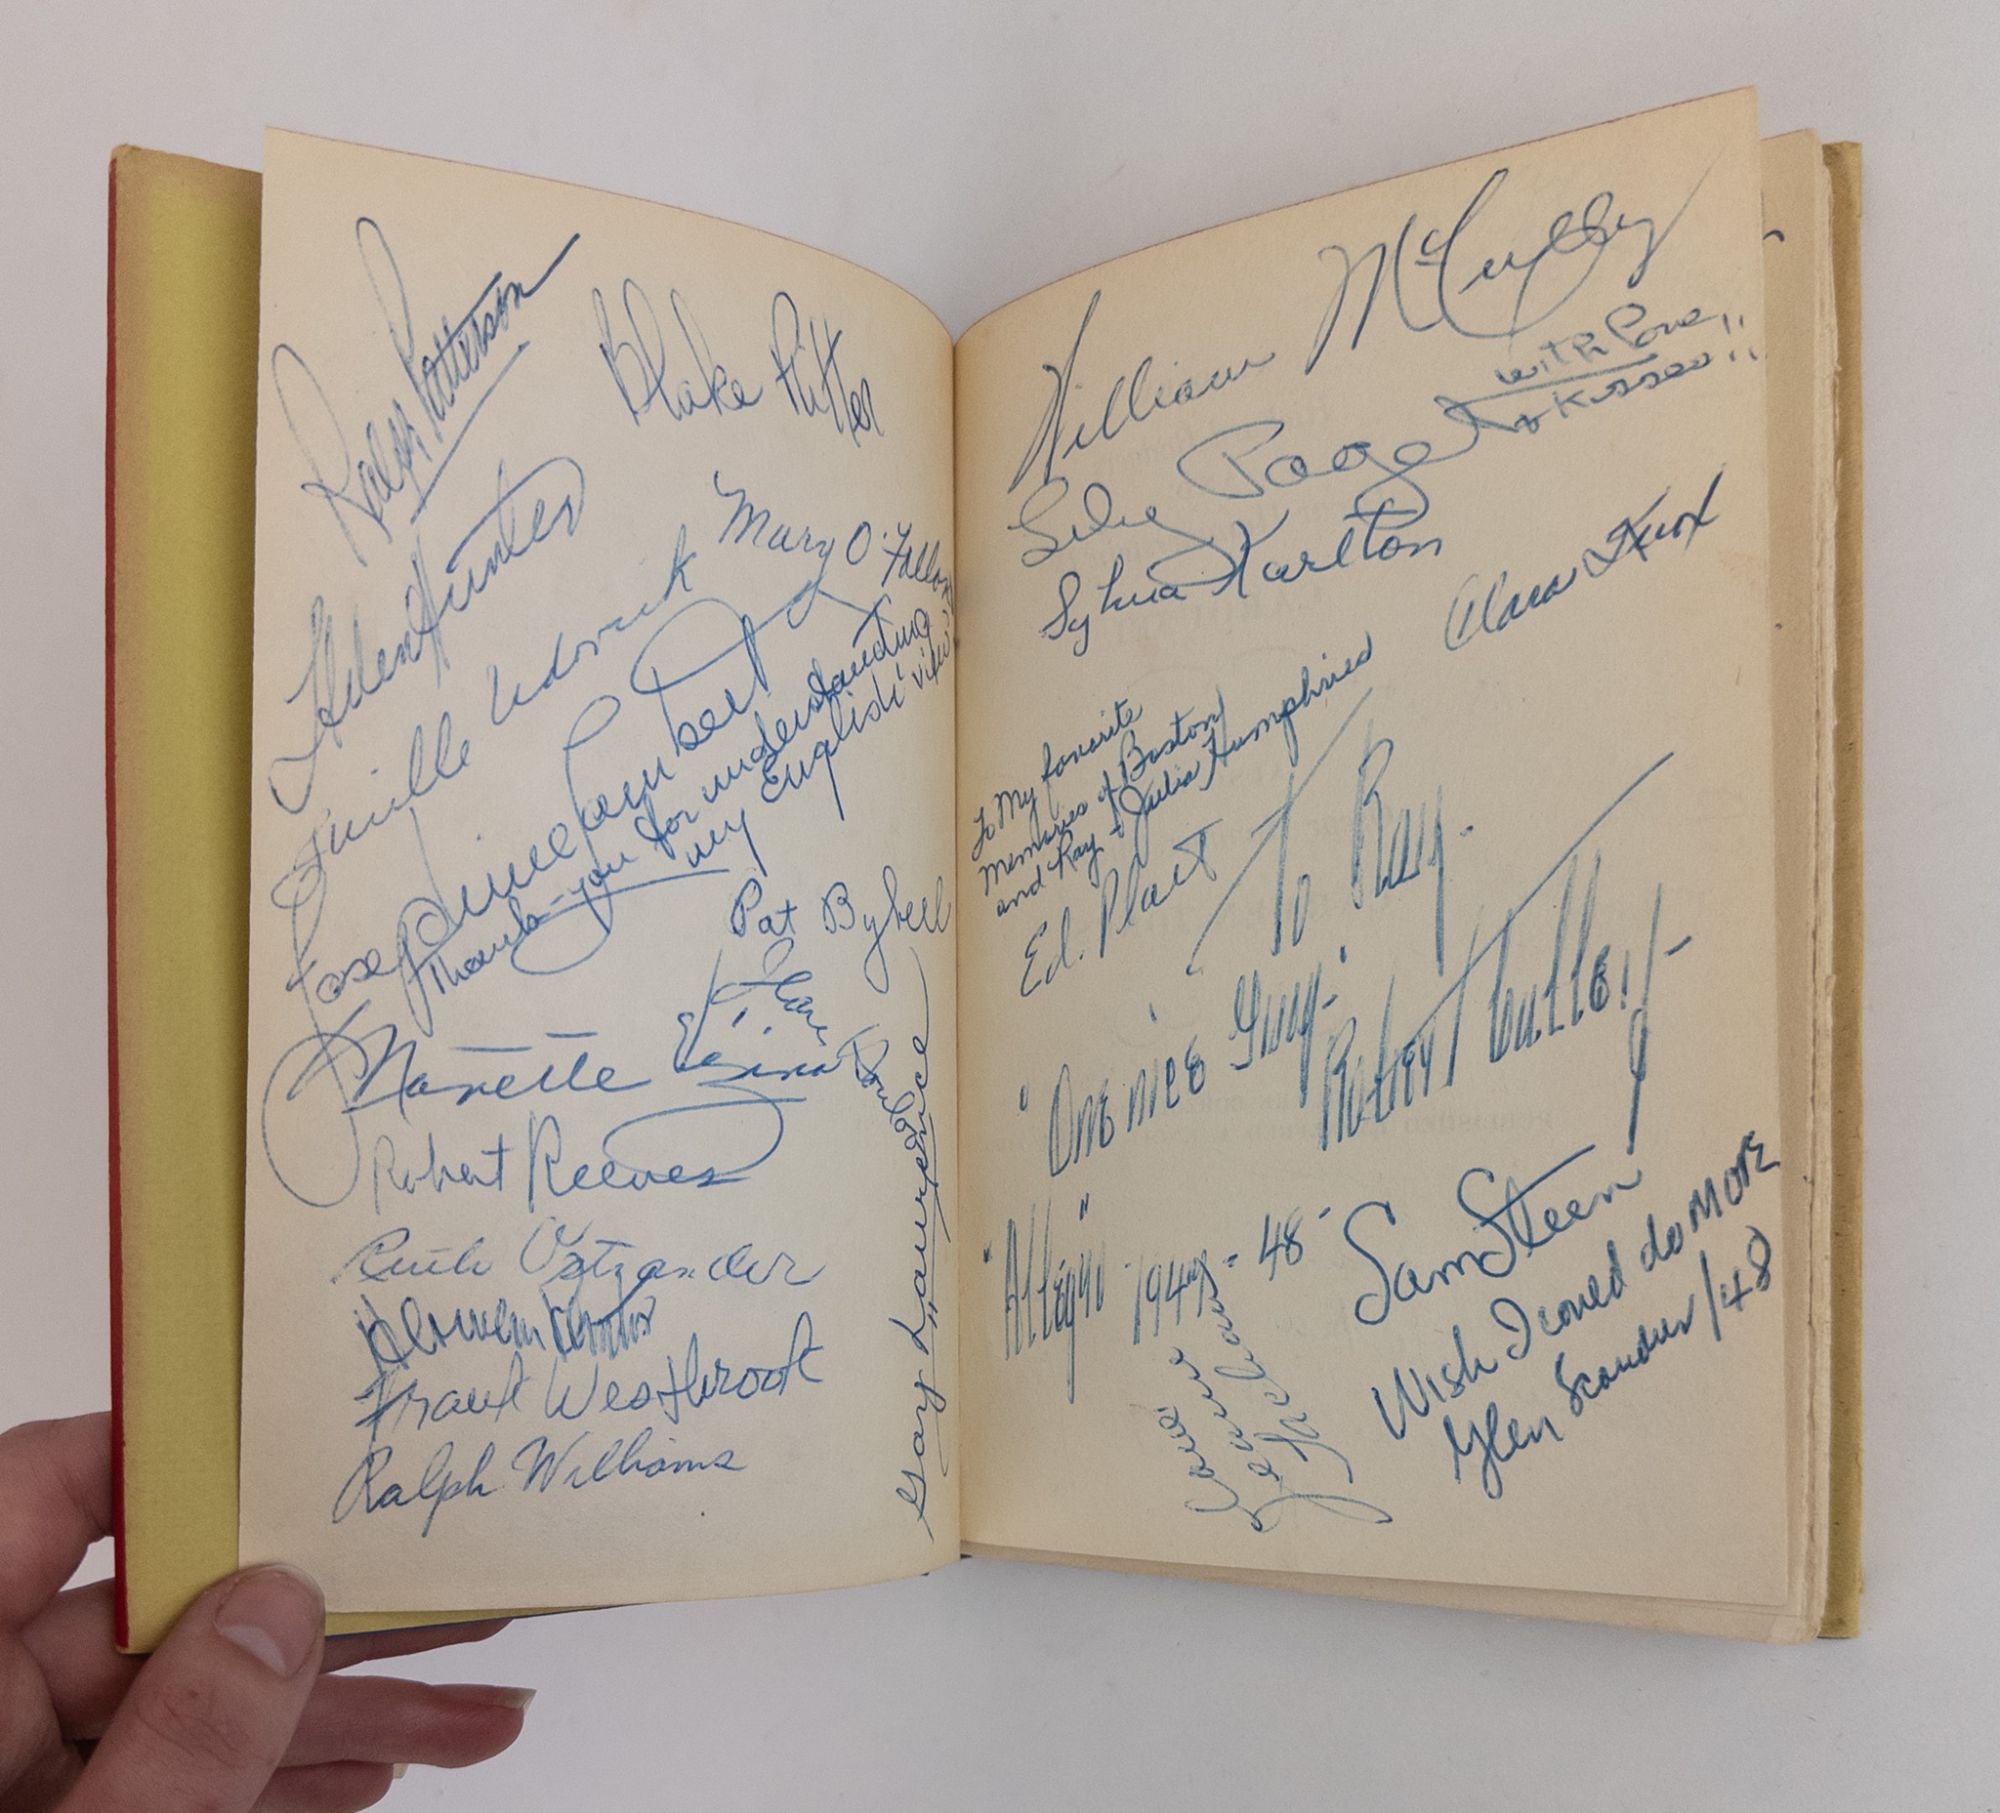 Ralph Patterson
Blake Ritter
Helen Hunter
Mary O'Fallon
Lucille Udovick
Josephine Lambert
Thank-you for understanding
my 'English' view
Pat Byheel
Nanette
Robert Reeves
Ruth Ostrander
Frank Westbrook
Ralph Williams
Gay Laurence
William McCully
Page
with Love
& Kisses!!
Sylvia Karlton
Clara Knox
To My favorite
Memories of Boston
and Ray & Julia Humphries
Ed. Platt
To Ray.
"One nice Guy"
Robert
"Allegro" 1947 - 48 -
Sam Steen
Wish I could do MORE
Glen Scandur /48